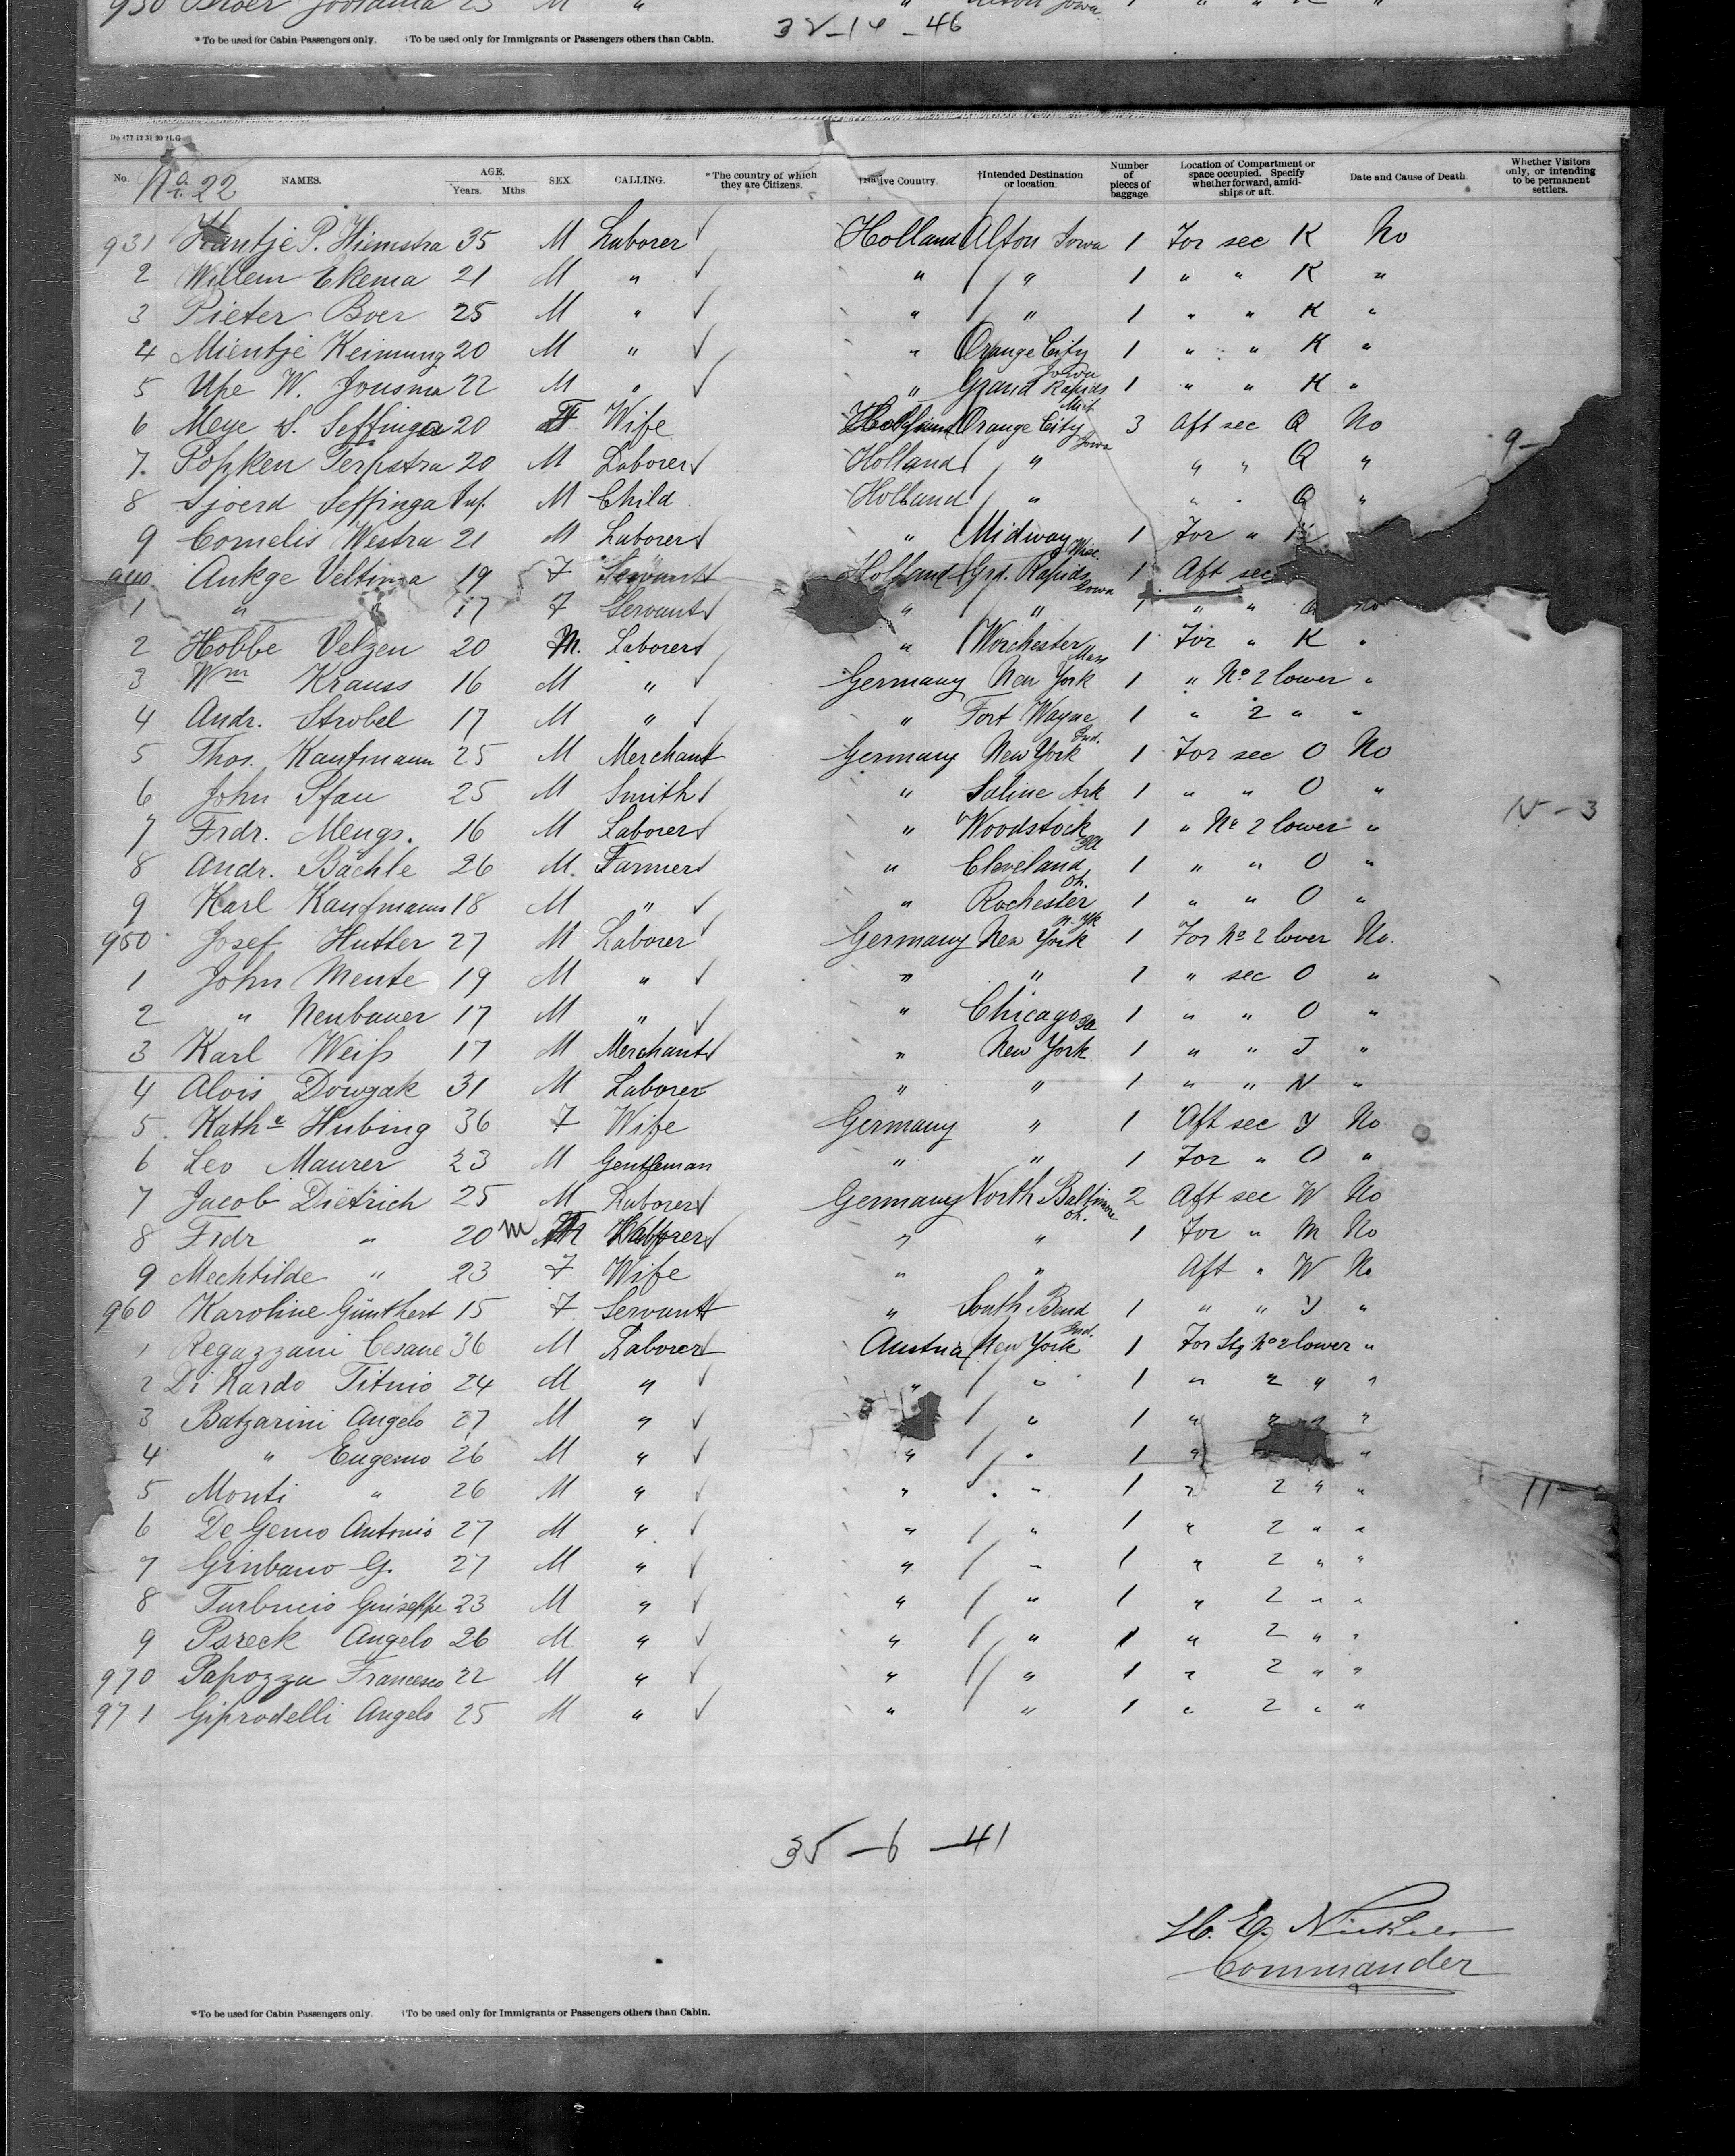 930 Broer 25 M " " Alton Iowa 1 " " K "
*To be used for Cabin Passengers only. †To be used only for Immigrants or Passengers others than Cabin.
32-14-46
No. 22
No. NAMES. AGE. Years. Mths. SEX. CALLING. *The country of which they are Citizens. †Native Country. †Intended Destination or location. Number of pieces of baggage Location of Compartment or space occupied. Specify whether forward, amidships or aft. Date and Cause of Death. Whether Visitors only, or intending to be permanent settlers.
931 Hantje P. Hiemstra 35 M Laborer Holland Alton Iowa 1 For sec K No
2 Willem Ekema 21 M " " " 1 " " K "
3 Pieter Boer 25 M " " " 1 " " K "
4 Mientje Keimung 20 M " " Orange City Iowa 1 " " K "
5 Upe W. Jousma 22 M " " Grand Rapids Mich 1 " " K "
6 Meye S. Seffinga 20 F Wife Holland Orange City Iowa 3 Aft sec Q No
7. Popken Terpstra 20 M Laborer Holland " " " Q "
9-
8 Sjoerd Seffinga Inf. M Child Holland " " " Q "
9 Cornelis Westra 21 M Laborer " Midway Wisc 1 For " K
940 Aukge Veltima 19 F Servant Holland Grd. Rapids Iowa 1 Aft sec
1 " 17 F Servant " " 1 " " Q No
2 Hobbe Velzen 20 M. Laborer " Worchester Mass 1 For " K "
3 Wm Krauss 16 M " Germany New York 1 " No 2 lower "
4 Andr. Strobel 17 M " " Fort Wayne Ind. 1 " 2 " "
5 Thos. Kaufmann 25 M Merchant Germany New York 1 For sec O No
6 John Pfau 25 M Smith " Saline Ark 1 " " O "
7 Frdr. Mengs. 16 M Laborer " Woodstock Ill 1 " No 2 lower "
8 Andr. Bächle 26 M. Farmer " Cleveland Oh. 1 " " O "
9 Karl Kaufmann 18 M " " Rochester N. Yk 1 " " O "
950 Josef Hutter 27 M Laborer Germany New York 1 For No 2 lower No.
1 John Mente 19 M " " " 1 " sec O "
2 " Neubauer 17 M " " Chicago Ill 1 " " O "
3 Karl Weiß 17 M Merchant " New York. 1 " " J "
4 Alois Dowzak 31 M Laborer " " 1 " " N "
5. Katha Hubing 36 F Wife Germany " 1 Aft sec Y No
6 Leo Maurer 23 M Gentleman " " 1 For " O "
7 Jacob Dietrich 25 M Laborer Germany North Baltimore Oh. 2 Aft sec W No
8 Frdr " 20 m M Laborer " " 1 For " M No
9 Mechtilde " 23 F Wife " " Aft " W No
960 Karoline Günthert 15 F Servant " South Bend Ind. 1 " " Y "
1 Regazzani Cesare 36 M Laborer Austria New York 1 For Stg No 2 lower "
2 Di Nardo Titnio 24 M " " " 1 " 2 " "
3 Batzarini Angelo 27 M " " 1 " 2 " "
4 " Eugenio 26 M " " " 1 " "
5 Monti " 26 M " " " 1 " 2 " "
11-
6 De Gemo Antonio 27 M " " " 1 " 2 " "
7 Ginbano G. 27 M " " " 1 " 2 " "
8 Turbucio Guiseppe 23 M " " " 1 " 2 " "
9 Psreck Angelo 26 M " " " 1 " 2 " "
970 Papozza Francesco 22 M " " " 1 " 2 " "
971 Giprodelli Angelo 25 M " " " 1 " 2 " "
35-6-41
Commander
*To be used for Cabin Passengers only. †To be used only for Immigrants or Passengers others than Cabin.